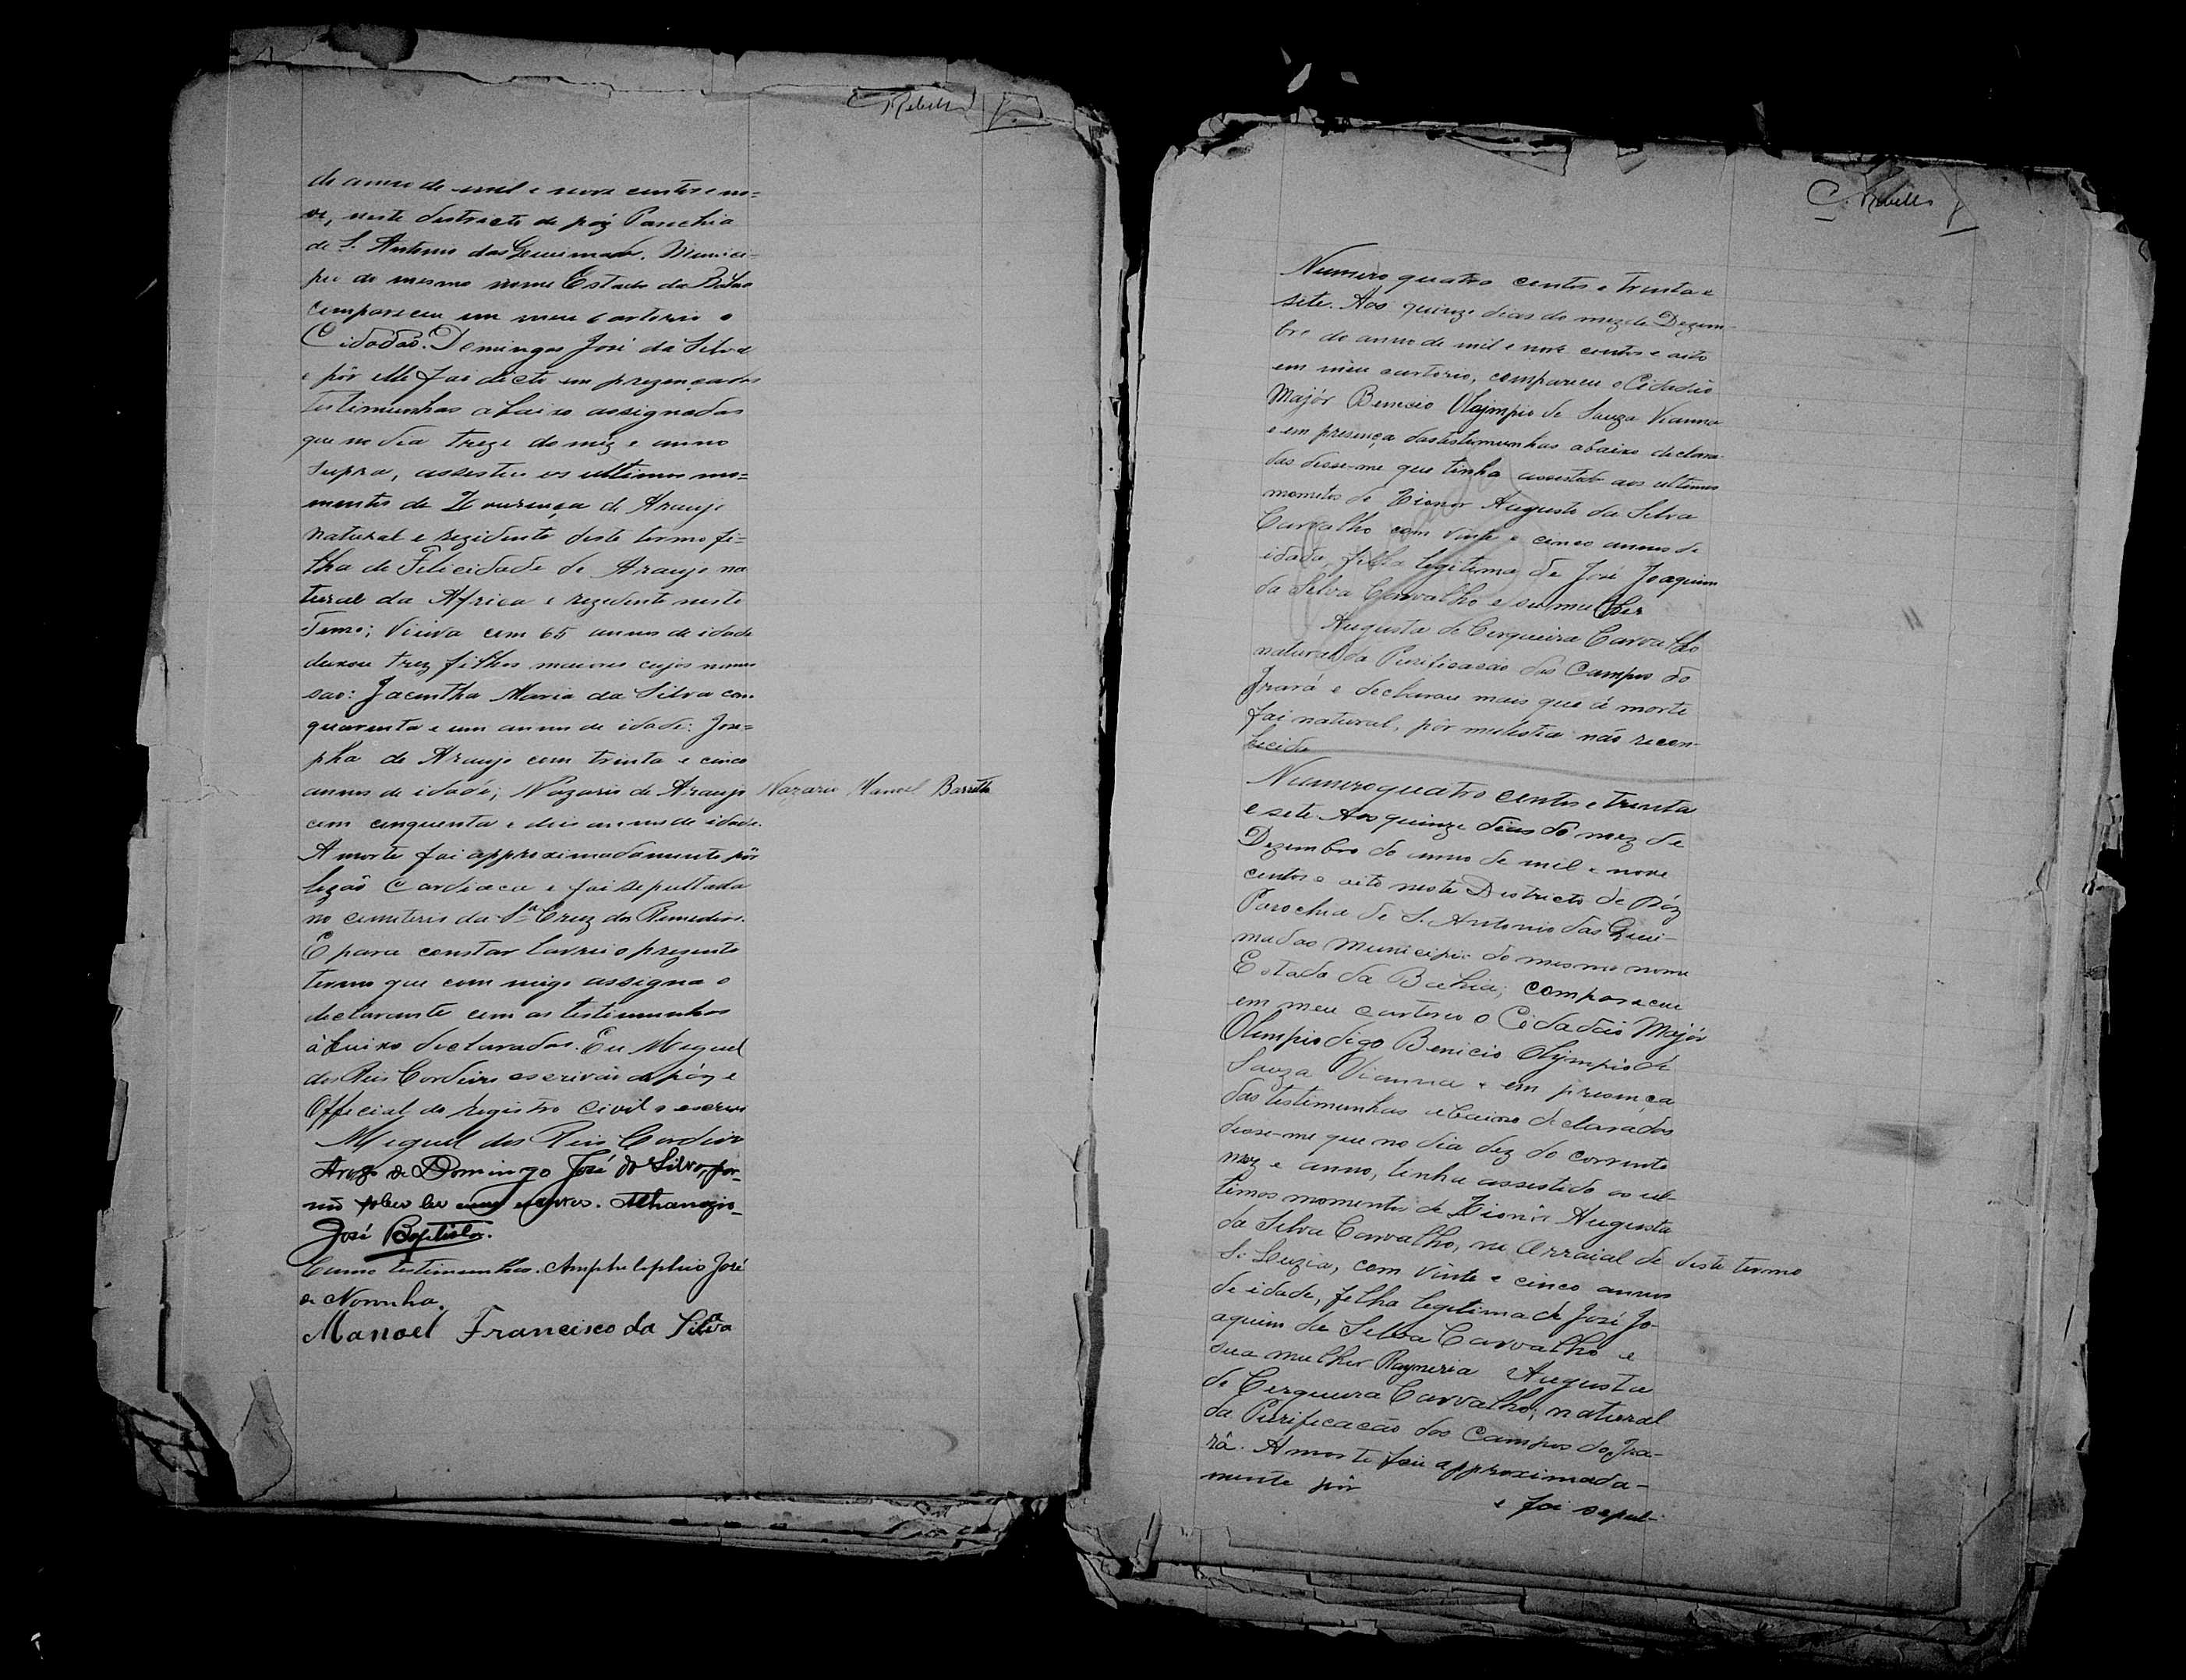 C. Rebello
do anno de mil e nove centos e no=
ve, neste destricto de páz Parochia
de S. Antonio das Queimadas, Munici-
pio do mesmo nome Estado da Bahia
compareceu em meu cartorio o
Cidadão. Domingos José da Silva
e pôr elle foi dicto em prezença das
testimunhas abaixo assignadas
que no dia treze do mez e anno
supra, assestiu os ultimos mo=
mentos de Lourença de Araujo
natural e rezidente deste termo fi=
lha de Felicidade de Araujo na
tural da Africa e rezidente neste
Termo; Viuva com 65 annos de idade
deixou trez filhos maiores cujos nomes
sao: Jacintha Maria da Silva com
quarenta e um annos de idade: Joze=
pha de Araujo com trinta e cinco
annos de idade; Nazario de Araujo Nazario Manoel Barretto
com cinquenta e dois annos de idade.
A morte foi approximadamente pôr
lezaõ Cardiaca e foi sepultada
no cemeterio da Sta Cruz dos Remedios.
E para constar lavrei o prezente
termo que com migo assigna o
declarante com as testimunhas
abaixo declaradas. Eu Miguel
dos Reis Cordeiro escrivão de páz e
Official do registro civil o escrevi
Miguel dos Reis Cordeiro
Arogo de Domingo José da Silva, por
não saber ler nem escrever. Athanazio
José Baptista.
Como testimunhas. Amphilophio José
de Noronha.
Manoel Francisco da Silva
C. Rebello
Numero quatro centos e trinta e
sete. Aos quinze dias do mez de Dezem-
bro do anno de mil e nove centos e oito
em meu cartorio, compareceu o Cidadão
Majór Benicio Olojmpio de Souza Vianna
e em presença das testemunhas abaixo declara-
das disse-me que tinha assestido aos ultimos
momentos de Augusto da Silva
Carvalho com vinte e cinco annos de
idade, filha legitima de José Joaquim
da Silva Carvalho e su mulher
Augusta de Cerqueira Carvalho
natural da Purificacão dos Campos do
Irará e declarou mais que a morte
foi natural, pôr molestia não recon-
hecida
Numero quatro centos e trinta
e sete. Aos quinze dias do mez de
Dezembro do anno de mil e nove
centos e oito neste Districto de Páz
Parochia de S. Antonio das Quei-
madas Municipio do mesmo nome
Estado da Bahia; compareceu
em meu cartorio o Cidadão Majór
Olimpio digo Benicio Olijmpio de
Souza Vianna e em presença
das testimunhas abaixo declaradas
disse-me que no dia dez do corrente
mez e anno, tinha assestido os ul-
timos momentos de Augusta
da Silva Carvalho, no Arraial de deste termo
S. Luzia, com vinte e cinco annos
de idade, filha legitima de José Jo-
aquim da Silva Carvalho e
sua mulher Raymeria Augusta
de Cerqueira Carvalho; natural
da Purificacão dos Campos do Ira-
rá. A morte foi approximada-
mente pôr
e foi sepul-